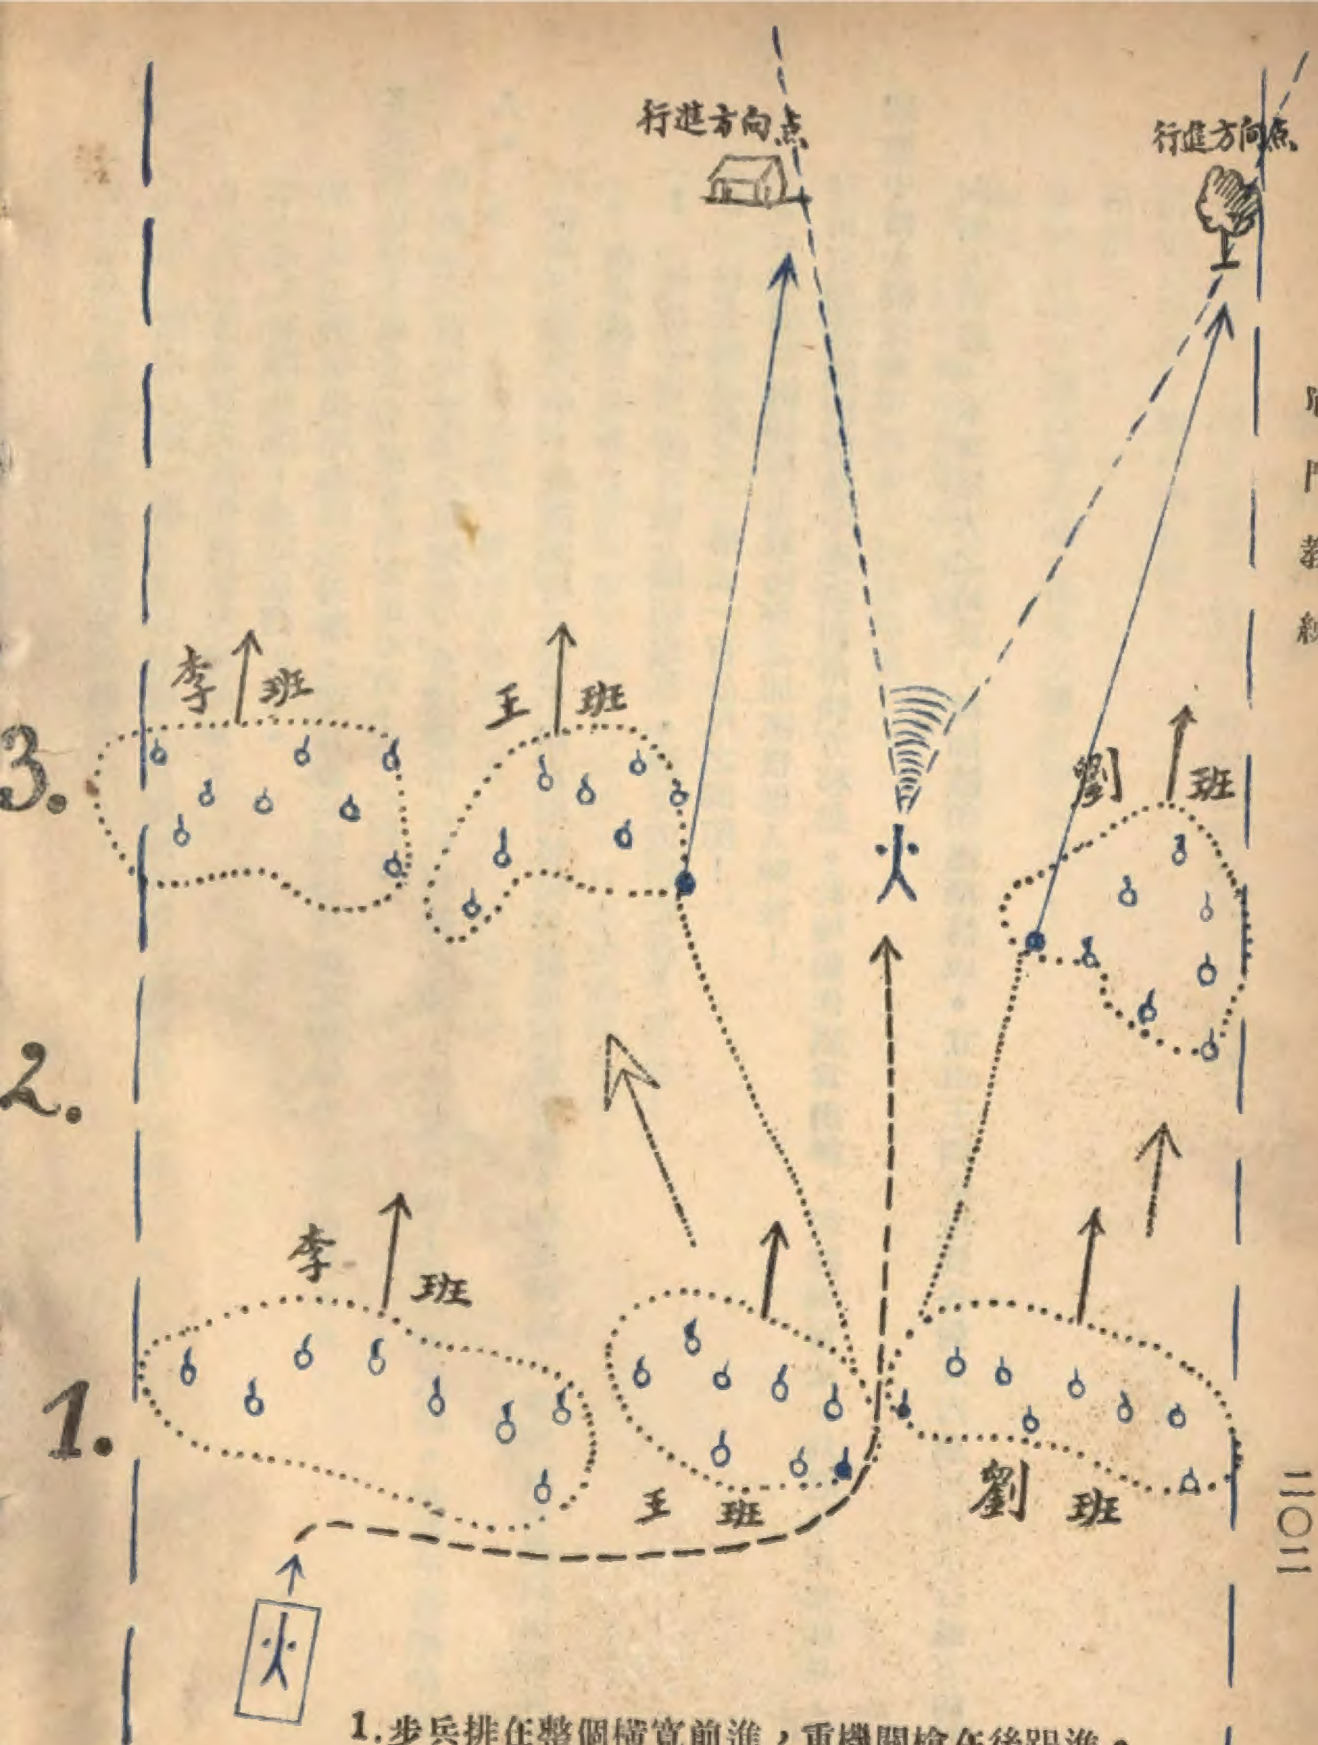 行進方向点
行進方向点
李 班
王 班
3.
劉 班
2.
火
李 班
1.
王 班
劉 班
火
二〇二
1.步兵排在整個橫寬前進，重機關槍在後跟進。